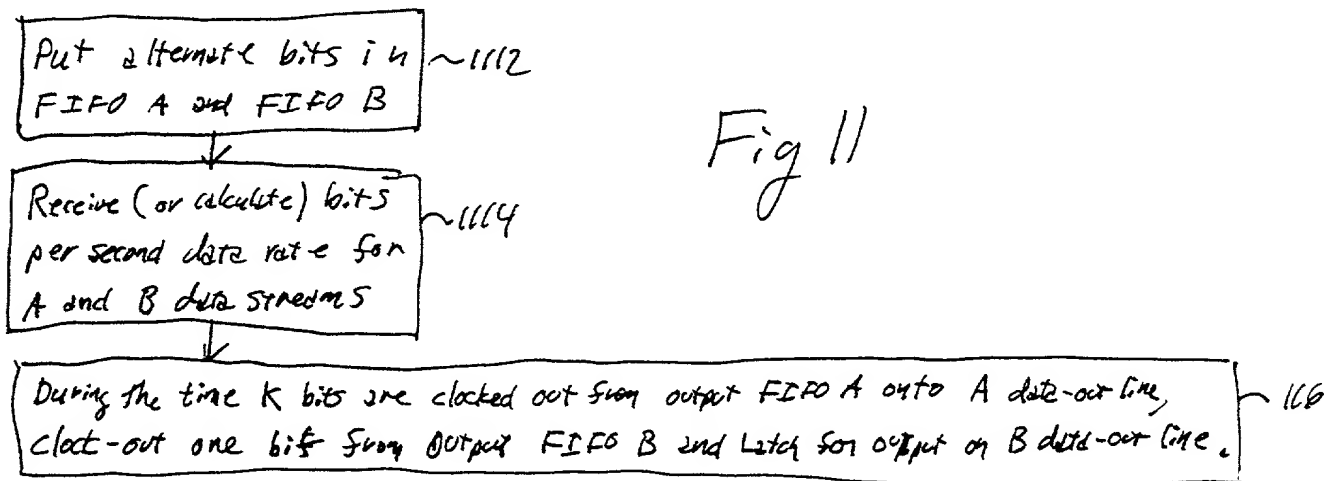 Put alternate bits in
FIFO A and FIFO B
~1112
Fig 11
Receive (or calculate) bits
per second data rate for
A and B data streams
~1114
During the time K bits are clocked out from output FIFO A onto A data-out line,
clock-out one bit from output FIFO B and Latch for output on B data-out line.
~ 116